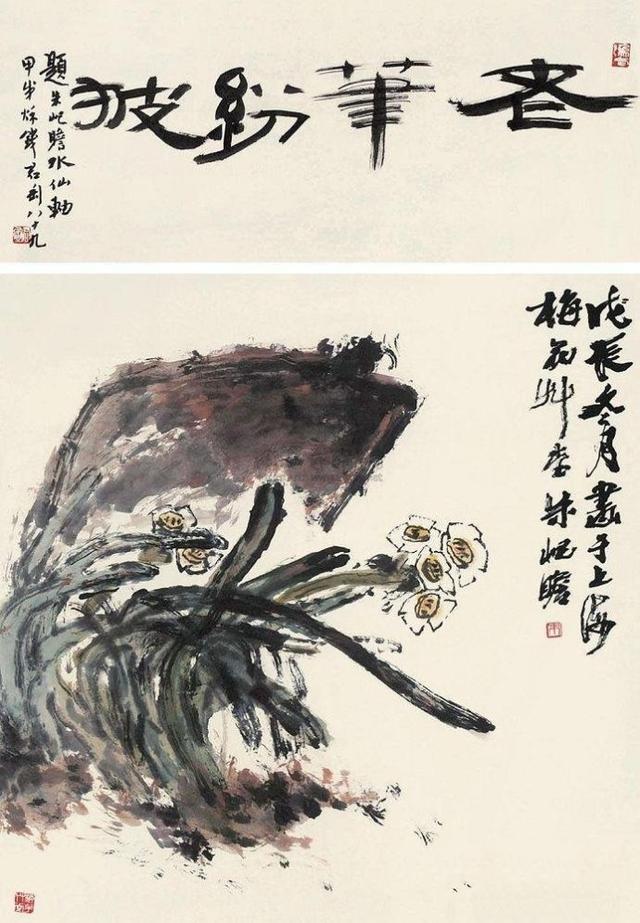 華紛披
題朱屺瞻水仙軸
甲戌秋錢君匋八十九
戊辰冬月畫于上海
梅花艸堂朱屺瞻